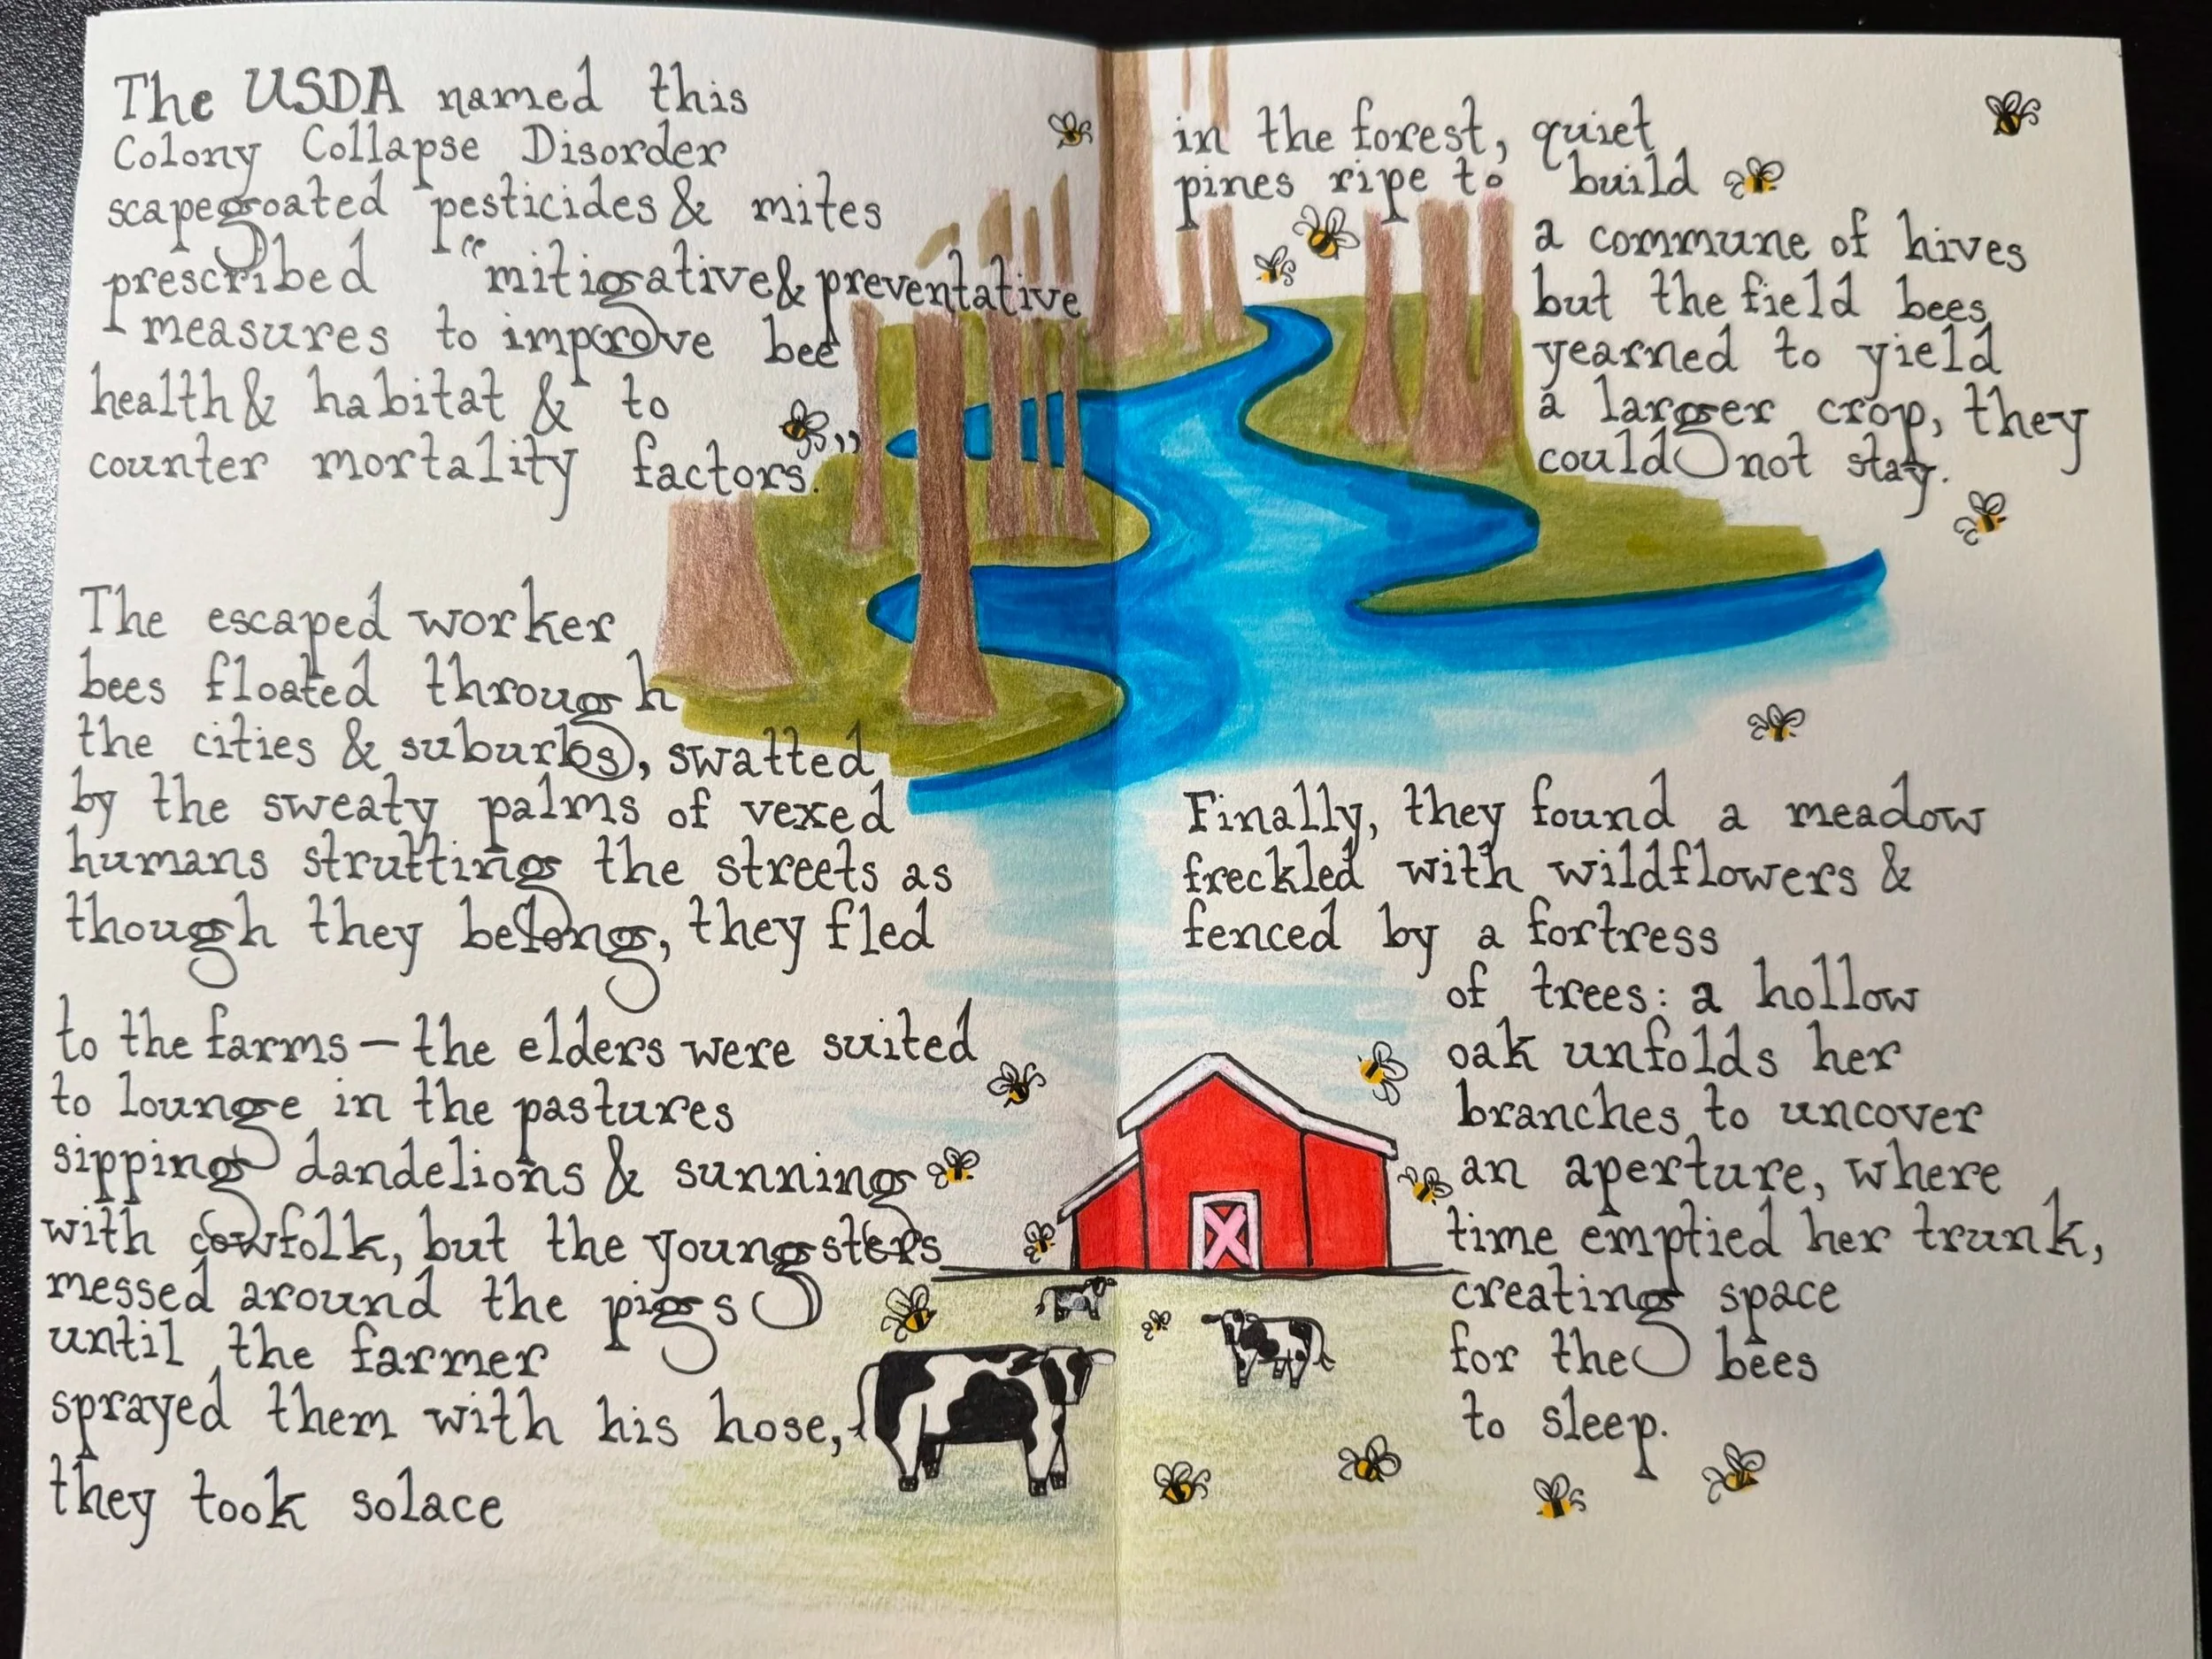 The USDA named this
Colony Collapse Disorder
scapegoated pesticides & mites
prescribed "mitigative & preventative
measures to improve bee
health & habitat & to
counter mortality factors."
The escaped worker
bees floated through
the cities & suburbs, swatted
by the sweaty palms of vexed
humans strutting the streets as
though they belong, they fled
to the farms — the elders were suited
to lounge in the pastures
sipping dandelions & sunning
with cowfolk, but the youngsters
messed around the pigs
until the farmer
sprayed them with his hose,
they took solace
in the forest, quiet
pines ripe to build
a commune of hives
but the field bees
yearned to yield
a larger crop, they
could not stay.
Finally, they found a meadow
freckled with wildflowers &
fenced by a fortress
of trees: a hollow
oak unfolds her
branches to uncover
an aperture, where
time emptied her trunk,
creating space
for the bees
to sleep.